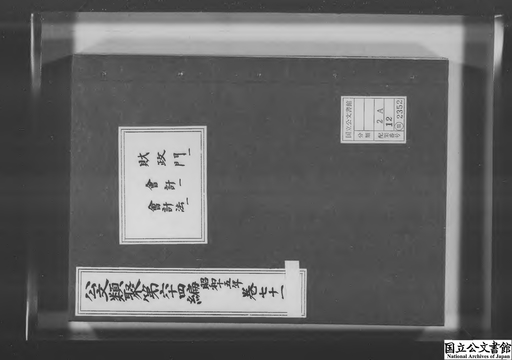 財政門一
會計一
會計法一
公文類聚第六十四編 昭和十五年 巻七十一
国立公文書館
分類
配架番号
2A
12
類2352
国立公文書館
National Archives of Japan